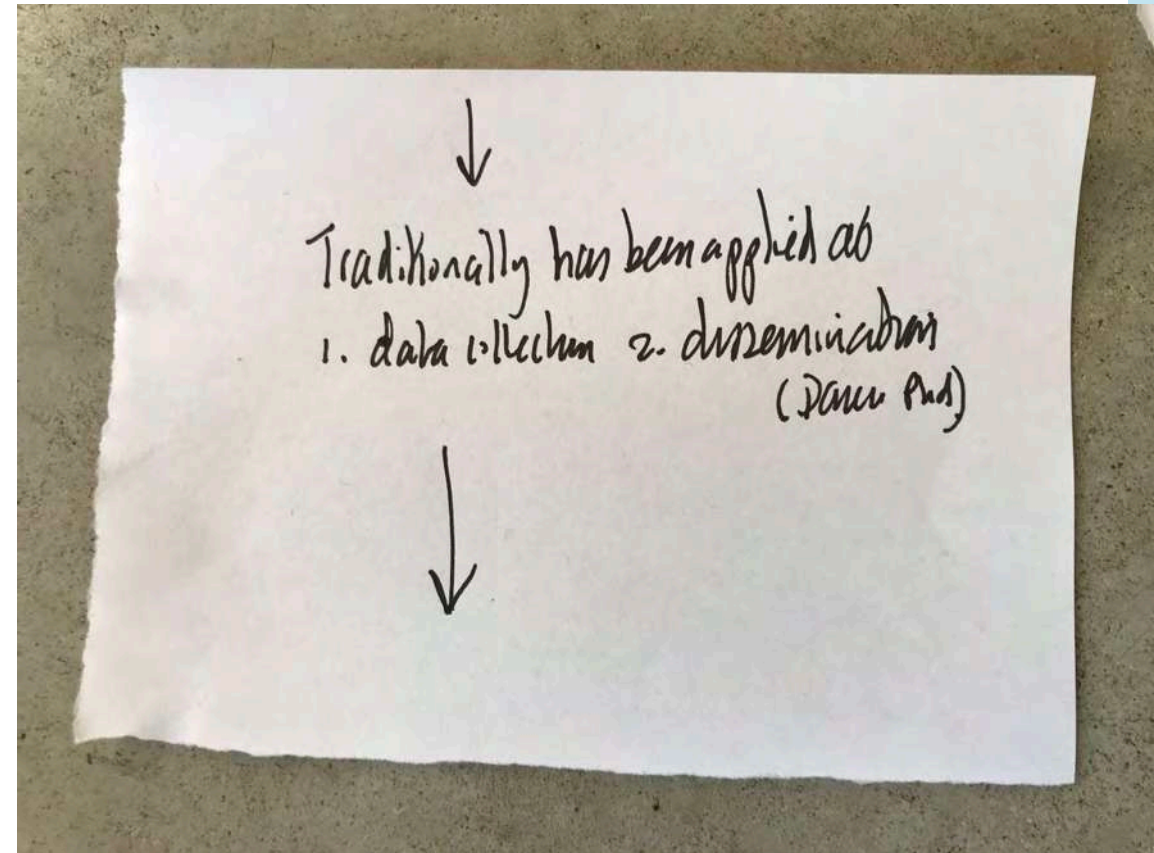 ↓
Traditionally has been applied as
1. data collection 2. dissemination
(PhD)
↓